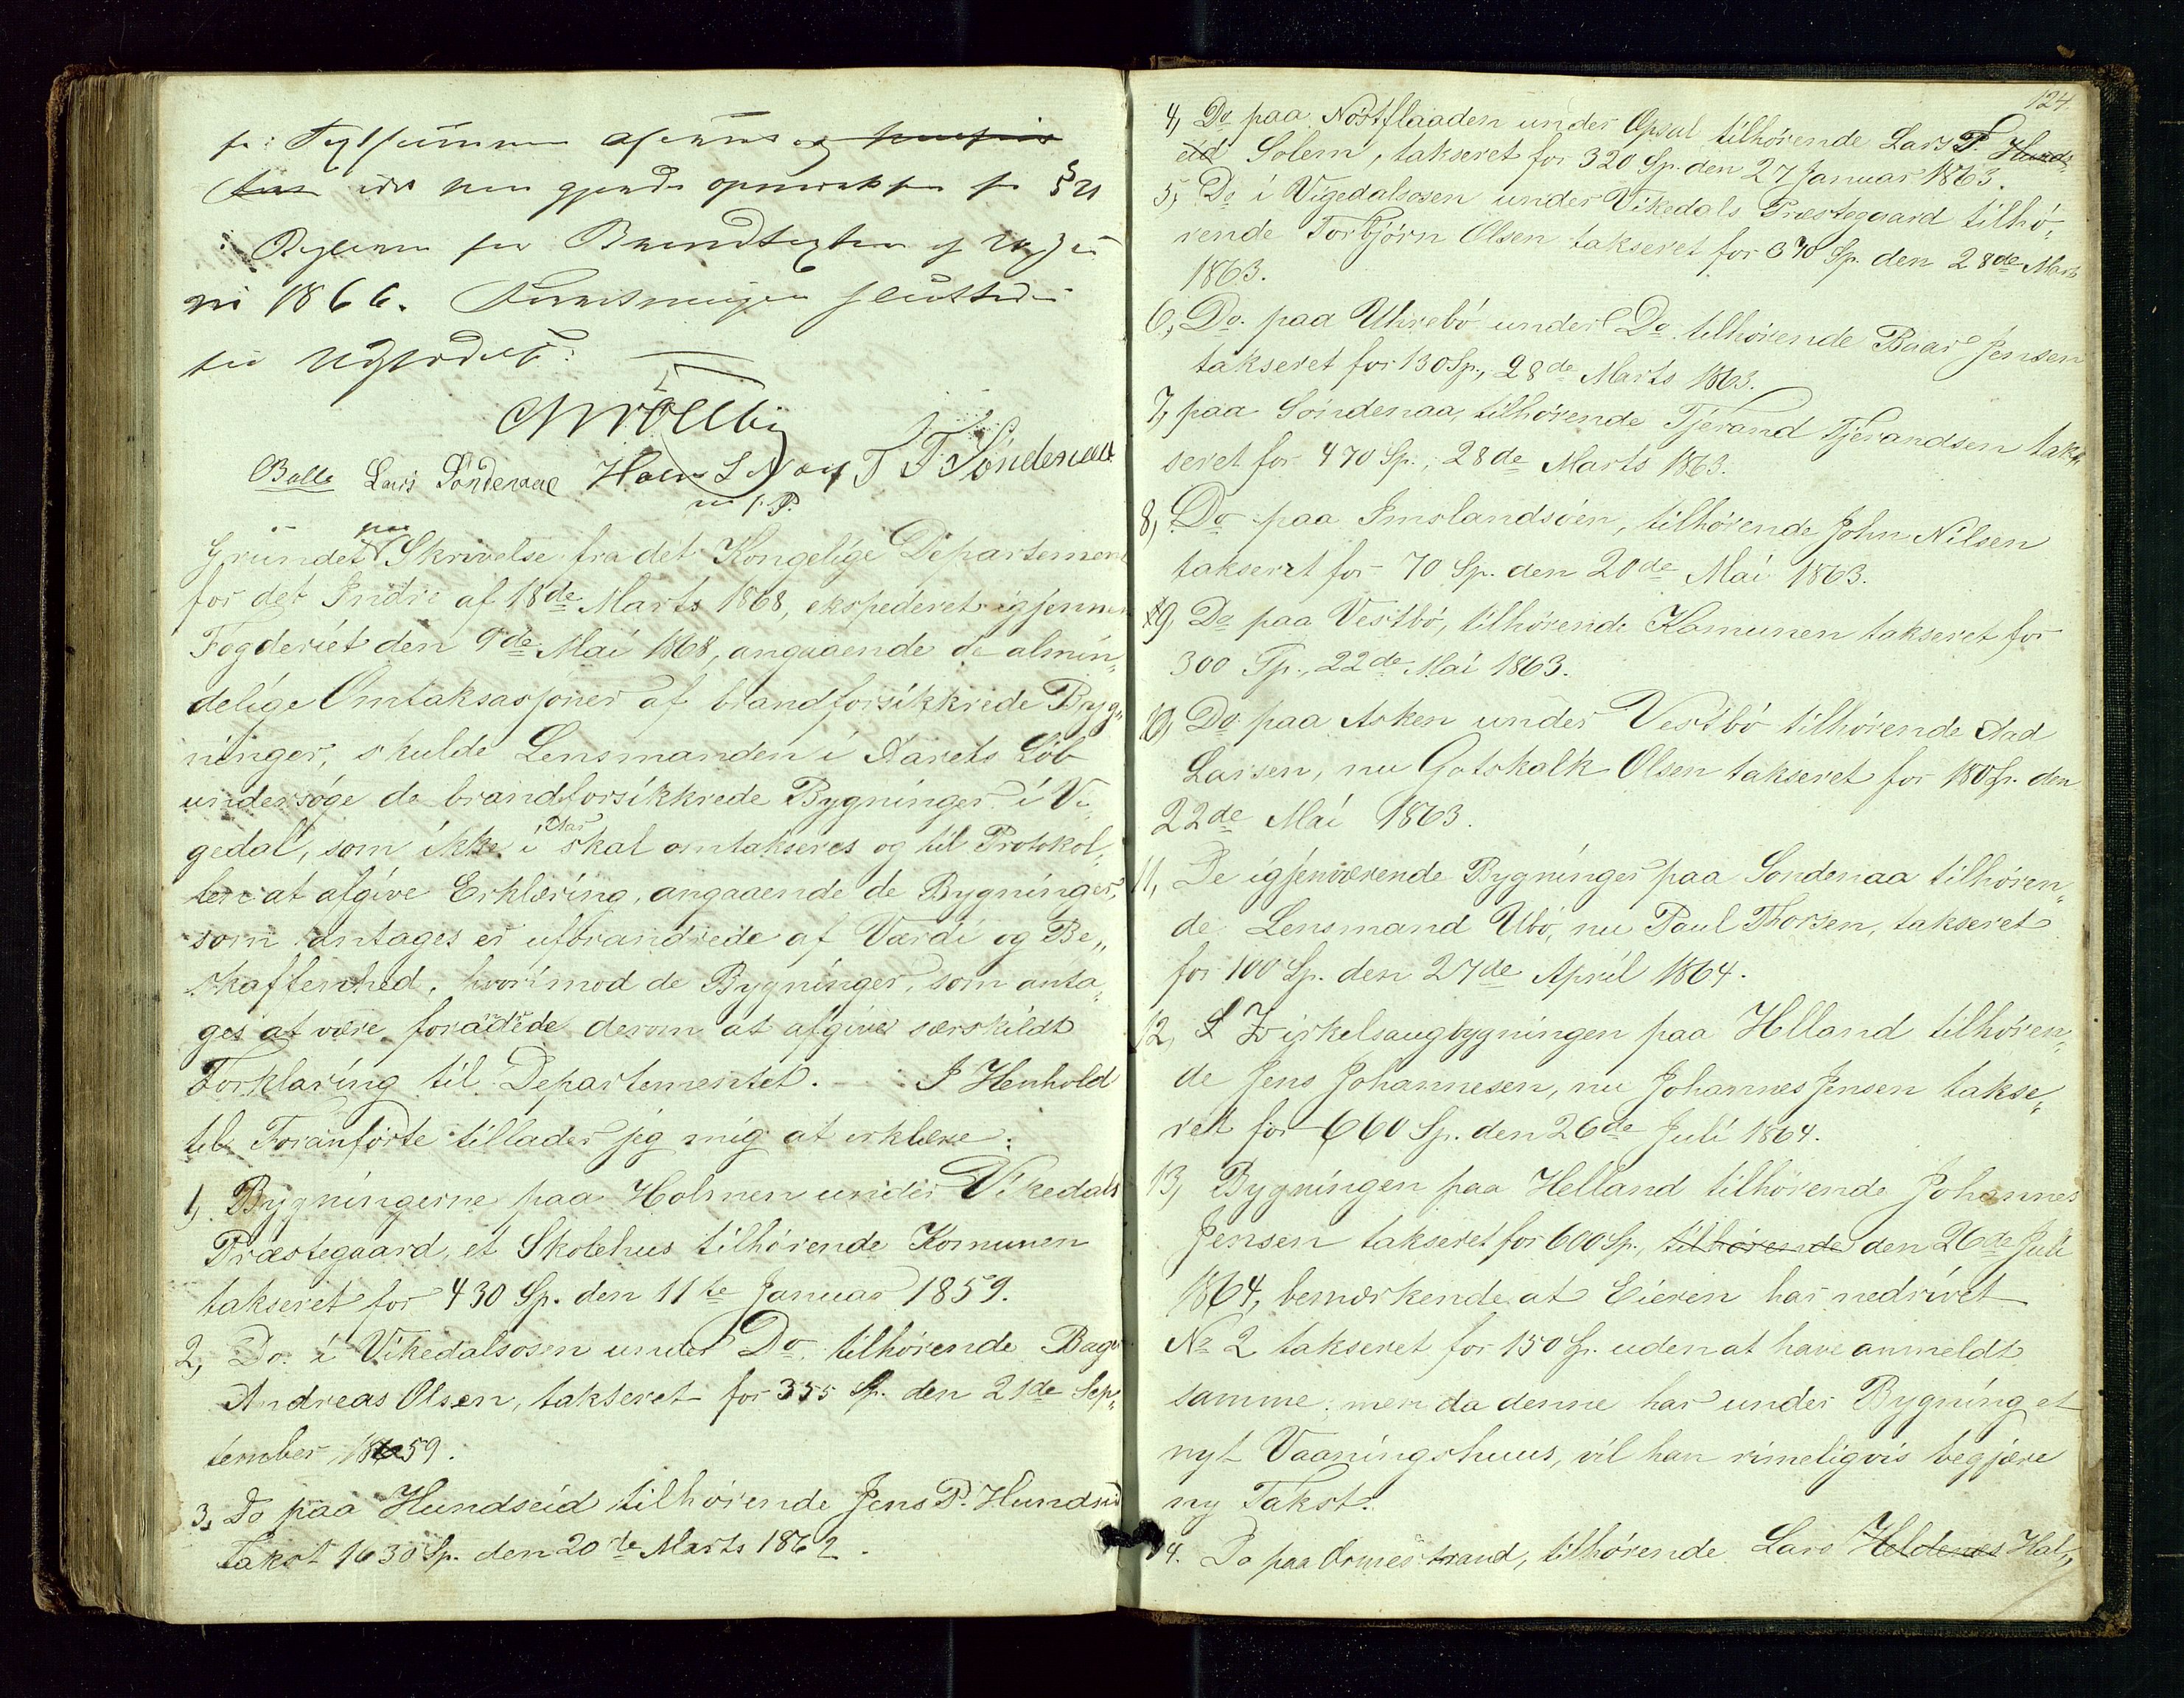 1866.
Balle Lars Söndenaa T T Söndenaa
m. f. P.
Grundet paa Skrivelse fra det Kongelige Departement
for det Indre af 18de Marts 1868, ekspederet igjennem
Fogderiet den 9de Mai 1868, angaaende de almin„
delige Omtaksasjoner af brandforsikkrede Byg„
ninger, skulde Lensmanden i Aarets Löb
undersöge de brandforsikkrede Bygninger i Vi
gedal, som ikke i Aar skal omtakseres og til Protokol„
len at afgive Erklæring, angaaende de Bygninger,
som antages er uforandrede af Værdi og Be„
skaffenhed, hvorimod de Bygninger, som anta„
ges at være forandrede derom at afgive særskildt
Forklaring til Departementet. — I Henhold
til Foranförte tillader jeg mig at erklære:
1, Bygningerne paa Holmen under Vikedals
Præstegaard, et Skolehus tilhörende Komunen
takseret for 430 Sp. den 11te Januar 1859.
2, Do. i Vikedalsosen under Do. tilhörende Bager
Andreas Olsen, takseret for 355 Sp. den 21de Sep„
tember 1859.
3, Do paa Hundseid tilhörende Jens P. Hundseid
Takst 1630 Sp. den 20de Marts 1862.
124.
4, Do paa Nöstflaaden under Opsal tilhörende Lars T. Hund„
eid Solem, takseret for 320 Sp. den 27 Januar 1863.
5, Do i Vigedalsosen under Vikedals Præstegaard tilhö„
rende Torbjörn Olsen takseret for 370 Sp. den 28de Marts
1863.
6, Do. paa Uhrebö under Do. tilhörende Baar Jensen
takseret for 130 Sp., 28de Marts 1863.
7, paa Söndenaa, tilhörende Tjerand Tjerandsen tak„
seret for 470 Sp., 28de Marts 1863.
8, Do paa Imslandsöen, tilhörende John Nilsen
takseret for 70 Sp. den 20de Mai 1863.
9, Do paa Vestbö, tilhörende Komunen takseret for
300 Sp., 22de Mai 1863.
10, Do paa Asken under Vestbö tilhörende Aad
Larsen, nu Gotskalk Olsen takseret for 180 Sp. den
22de Mai 1863.
11, De igjenværende Bygninger paa Söndenaa tilhören„
de Lensmand Ubö, nu Paul Thorsen, takseret
for 100 Sp. den 27de April 1864.
12, Zirkelsaugbygningen paa Helland tilhören„
de Jens Johannesen, nu Johannes Jensen takse„
ret for 660 Sp. den 26de Juli 1864.
13, Bygningen paa Helland tilhörende Johannes
Jensen takseret for 600 Sp., tilhörende den 26de Juli
1864, bemærkende at Eieren har nedrivet
No 2 takseret for 150 Sp. uden at have anmeldt
samme: men da denne har under Bygning et
nyt Vaaningshuus, vil han rimeligvis begjære
ny Takst.
14. Do paa Ormestrand, tilhörende Lars Heldenes Hal„